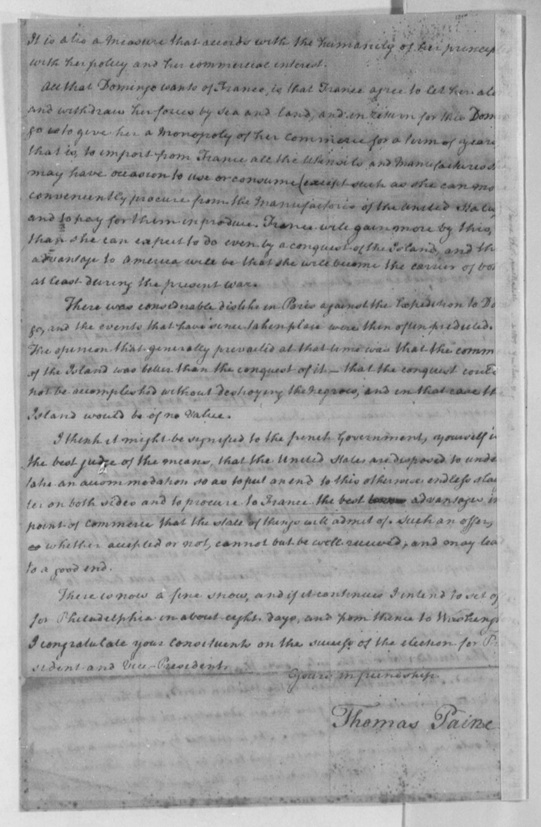 It is also a measure that accords with the humanity of her princip
with her policy and her commercial interest.
All that Domingo wants of France, is that France agree to let her alo
and withdraw her forces by sea and land, and in return for this Dom
go is to give her a monopoly of her commerce for a term of years
that is, to import from France all the Utensils and Manufactures s
may have occasion to use or consume (except such as she can mo
conveniently procure from the manufactories of the United States
and to pay for them in produce. France will gain more by this,
than she can expect to do even by a conquest of the Island, and the
advantage to America will be that she will become the carrier of bot
at least during the present war.
There was considerable dislike in Paris against the Expedition to Do
go, and the events that have since taken place were then often predicted.
The opinion that generally prevailed at that time was that the comm
of the Island was better than the conquest of it — that the conquest could
not be accomplished without destroying the negroes, and in that case the
Island would be of no value.
I think it might be signified to the french Government, yourself is
the best judge of the means, that the United States are disposed to unde
take an accommodation so as to put an end to this otherwise endless slau
ter on both sides and to procure to France the best advantages in
point of commerce that the state of things will admit of. Such an offer,
whether accepted or not, cannot but be well received, and may lea
to a good end.
There is now a fine snow, and if it continues I intend to set of
for Philadelphia in about eight days, and from thence to Washingt
I congratulate your constituents on the success of the election for Pr
sident and Vice-President.
Yours in friendship
Thomas Paine